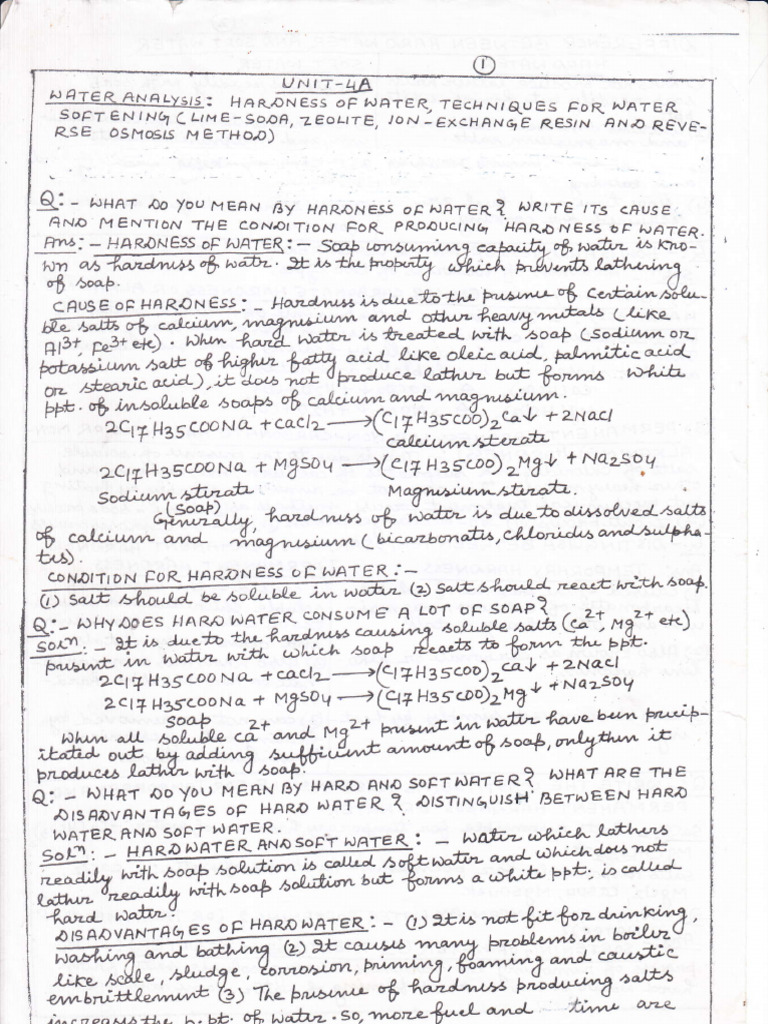 1
UNIT-4A
WATER ANALYSIS: HARDNESS OF WATER, TECHNIQUES FOR WATER
SOFTENING (LIME-SODA, ZEOLITE, ION-EXCHANGE RESIN AND REVE-
RSE OSMOSIS METHOD)
Q:- WHAT DO YOU MEAN BY HARDNESS OF WATER? WRITE ITS CAUSE
AND MENTION THE CONDITION FOR PRODUCING HARDNESS OF WATER.
Ans:- HARDNESS OF WATER:- Soap consuming capacity of water is kno-
wn as hardness of watr. It is the property which prevents lathering
of soap.
CAUSE OF HARDNESS:- Hardness is due to the presence of certain solu-
ble salts of calcium, magnesium and other heavy metals (like
Al3+, Fe3+ etc). When hard water is treated with soap (sodium or
potassium salt of higher fatty acid like oleic acid, palmitic acid
or stearic acid), it does not produce lather but forms white
ppt. of insoluble soaps of calcium and magnesium.
2C17H35COONa + CaCl2 → (C17H35COO)2Ca↓ + 2NaCl
calcium sterate
2C17H35COONa + MgSO4 → (C17H35COO)2Mg↓ + Na2SO4
Sodium sterate Magnesium sterate.
(Soap)
Generally, hardness of water is due to dissolved salts
of calcium and magnesium (bicarbonates, chlorides and sulpha-
tes).
CONDITION FOR HARDNESS OF WATER:-
(1) Salt should be soluble in water (2) Salt should react with soap.
Q:- WHY DOES HARD WATER CONSUME A LOT OF SOAP?
Soln:- It is due to the hardness causing soluble salts (Ca2+, Mg2+ etc)
present in water with which soap reacts to form the ppt.
2C17H35COONa + CaCl2 → (C17H35COO)2Ca↓ + 2NaCl
2C17H35COONa + MgSO4 → (C17H35COO)2Mg↓ + Na2SO4
soap
When all soluble Ca2+ and Mg2+ present in water have been precip-
itated out by adding sufficient amount of soap, only then it
produces lather with soap.
Q:- WHAT DO YOU MEAN BY HARD AND SOFT WATER? WHAT ARE THE
DISADVANTAGES OF HARD WATER? DISTINGUISH BETWEEN HARD
WATER AND SOFT WATER.
Soln:- HARD WATER AND SOFT WATER:- Water which lathers
readily with soap solution is called soft water and which does not
lather readily with soap solution but forms a white ppt. is called
hard water.
DISADVANTAGES OF HARD WATER:- (1) It is not fit for drinking,
washing and bathing (2) It causes many problems in boiler
like scale, sludge, corrosion, priming, foaming and caustic
embrittlement (3) The presence of hardness producing salts
increases the b.pt. of water. So, more fuel and time are